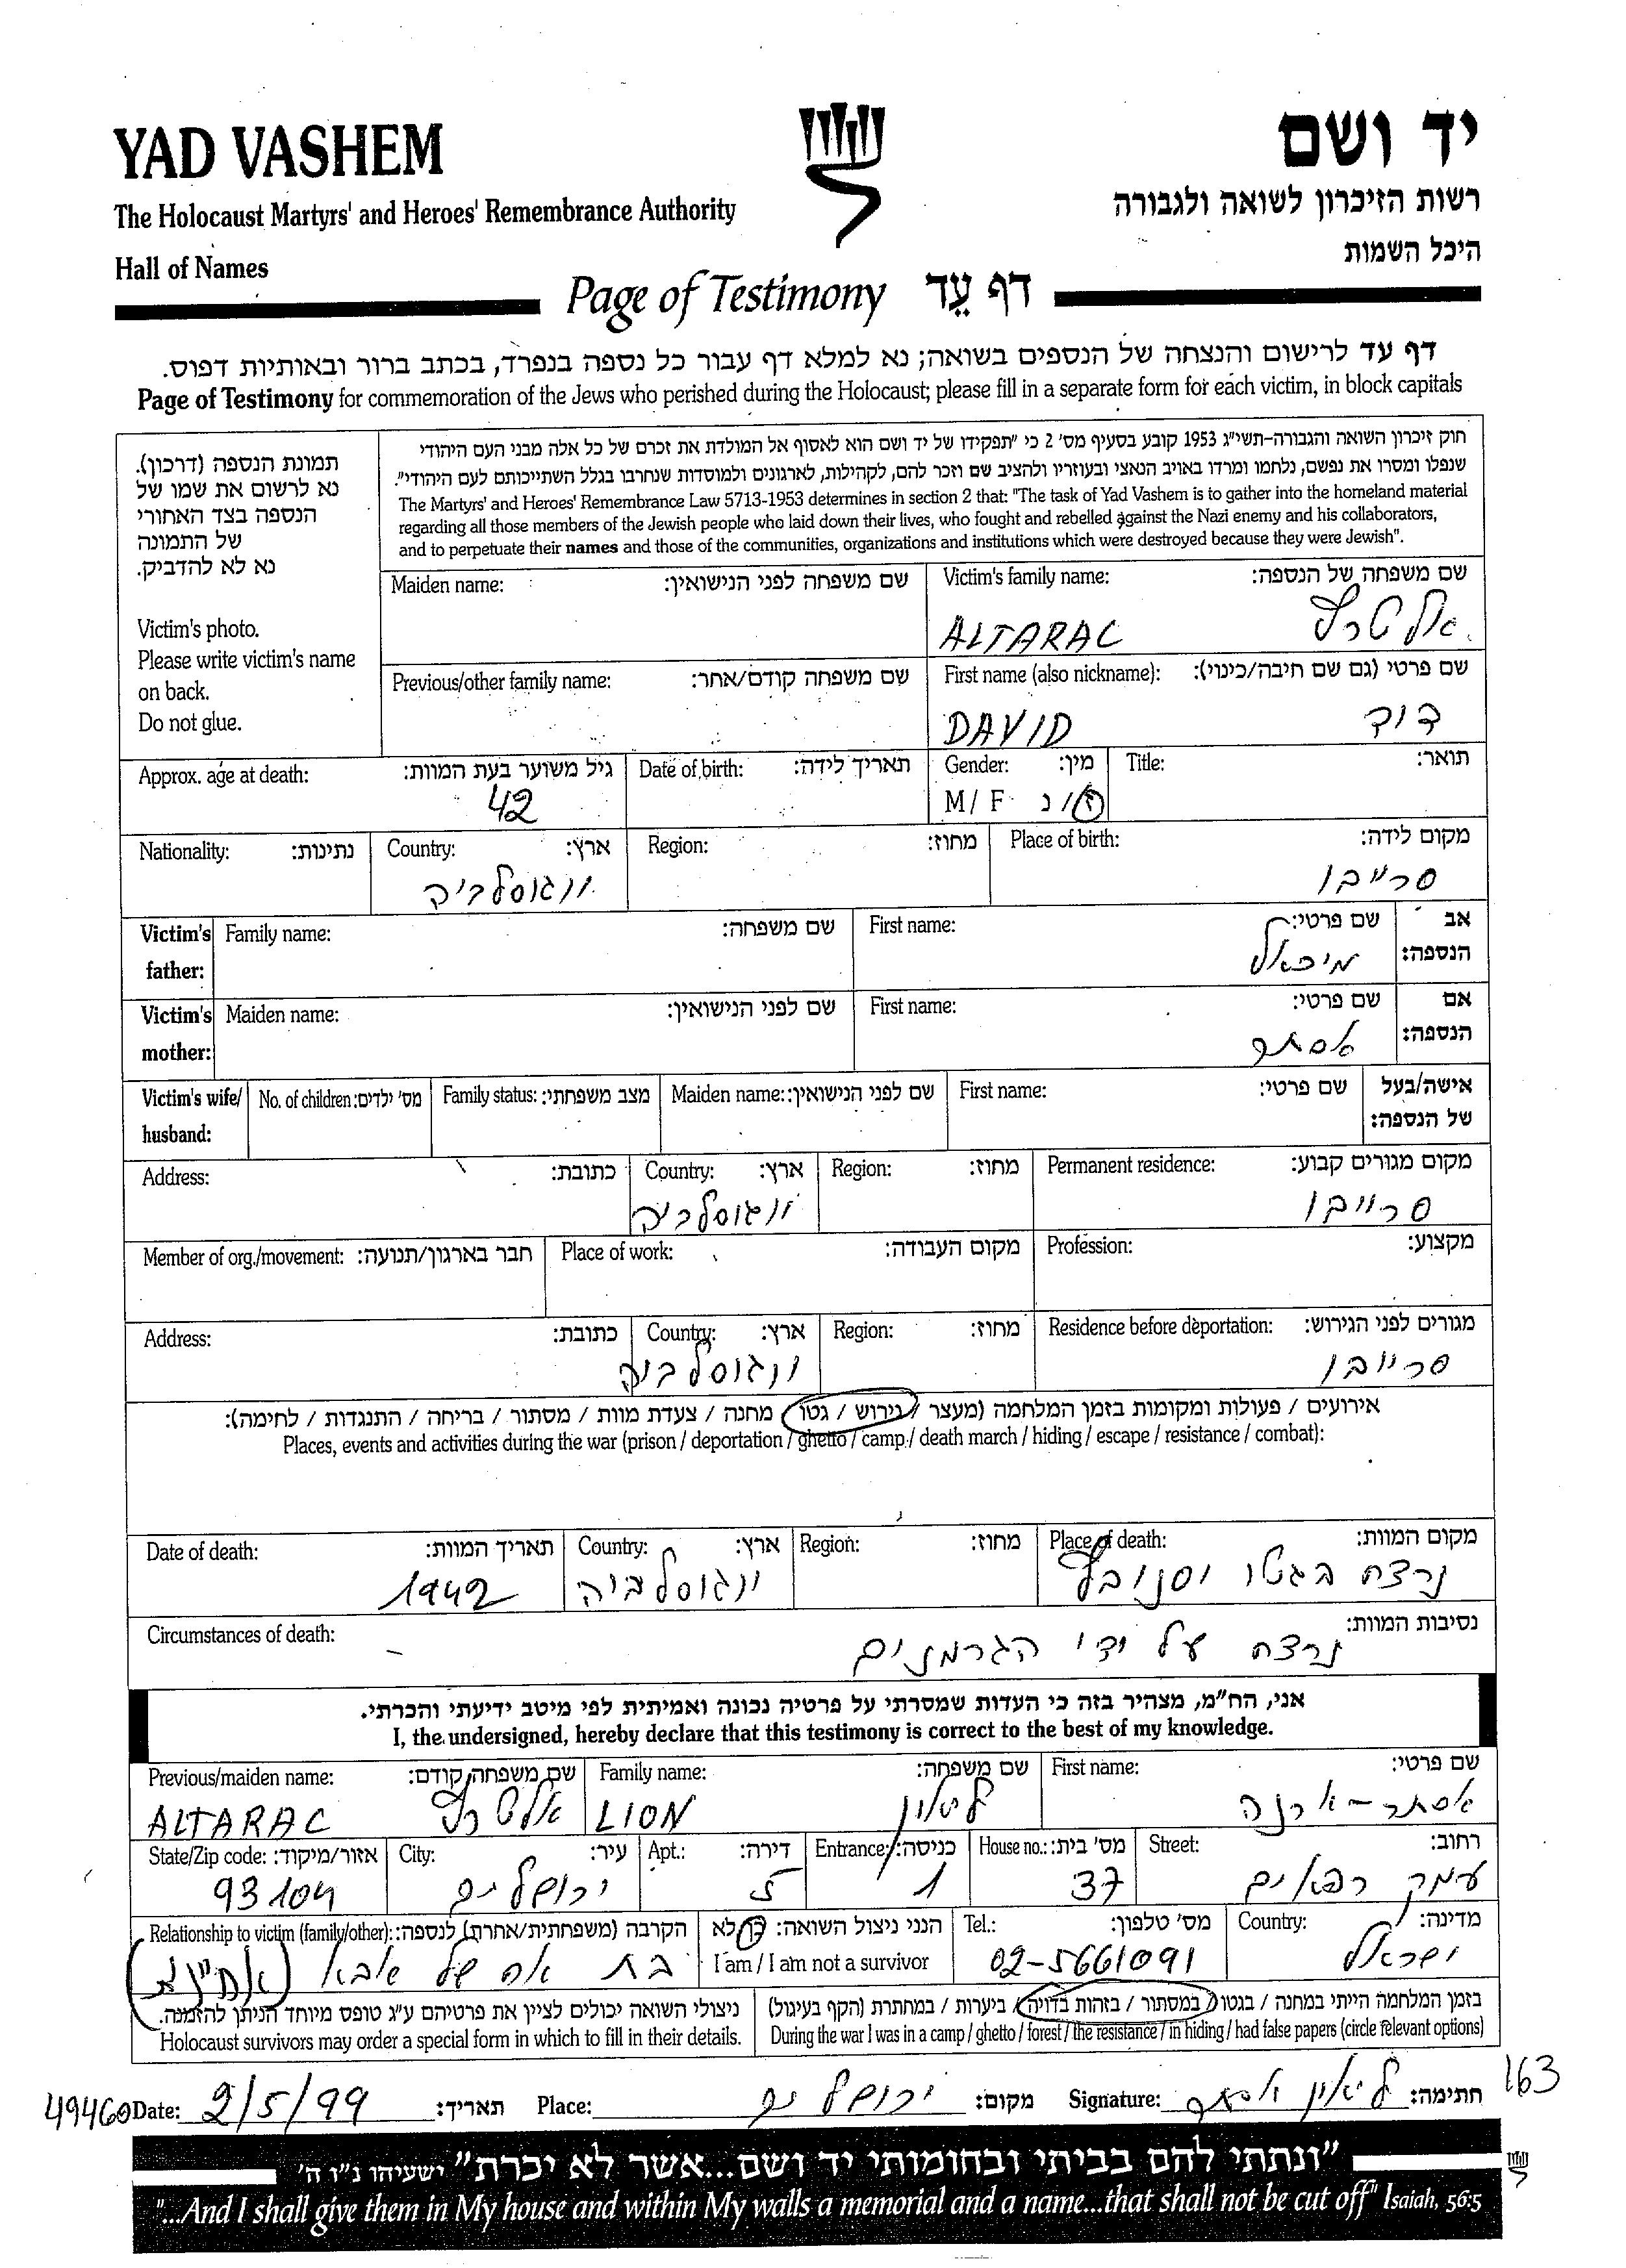 YAD VASHEM
יד ושם
The Holocaust Martyrs' and Heroes' Remembrance Authority
רשות הזיכרון לשואה ולגבורה
Hall of Names
היכל השמות
Page of Testimony דף עֵד
דף עד לרישום והנצחה של הנספים בשואה; נא למלא דף עבור כל נספה בנפרד, בכתב ברור ובאותיות דפוס.
Page of Testimony for commemoration of the Jews who perished during the Holocaust; please fill in a separate form for each victim, in block capitals
תמונת הנספה (דרכון).
נא לרשום את שמו של
הנספה בצד האחורי
של התמונה
נא לא להדביק.
Victim's photo.
Please write victim's name
on back.
Do not glue.
חוק זיכרון השואה והגבורה-תשי"ג 1953 קובע בסעיף מס' 2 כי "תפקידו של יד ושם הוא לאסוף אל המולדת את זכרם של כל אלה מבני העם היהודי
שנפלו ומסרו את נפשם, נלחמו ומרדו באויב הנאצי ובעוזריו ולהציב שם וזכר להם, לקהילות, לארגונים ולמוסדות שנחרבו בגלל השתייכותם לעם היהודי".
The Martyrs' and Heroes' Remembrance Law 5713-1953 determines in section 2 that: "The task of Yad Vashem is to gather into the homeland material
regarding all those members of the Jewish people who laid down their lives, who fought and rebelled against the Nazi enemy and his collaborators,
and to perpetuate their names and those of the communities, organizations and institutions which were destroyed because they were Jewish".
Maiden name: שם משפחה לפני הנישואין:
Victim's family name: שם משפחה של הנספה:
ALTARAC אלטרץ
Previous/other family name: שם משפחה קודם/אחר:
First name (also nickname): שם פרטי (גם שם חיבה/כינוי):
DAVID דוד
Approx. age at death: גיל משוער בעת המוות:
42
Date of birth: תאריך לידה:
Gender: מין:
M / F ז/נ
Title: תואר:
Nationality: נתינות:
Country: ארץ:
יוגוסלביה
Region: מחוז:
Place of birth: מקום לידה:
סרייבו
Victim's father: Family name: שם משפחה:
First name: שם פרטי: אב הנספה:
מיכאל
Victim's mother: Maiden name: שם לפני הנישואין:
First name: שם פרטי: אם הנספה:
אסתר
Victim's wife/ husband: No. of children: מס' ילדים: Family status: מצב משפחתי: Maiden name: שם לפני הנישואין: First name: שם פרטי: אישה/בעל של הנספה:
Address: כתובת:
Country: ארץ:
יוגוסלביה
Region: מחוז:
Permanent residence: מקום מגורים קבוע:
סרייבו
Member of org./movement: חבר בארגון/תנועה: Place of work: מקום העבודה: Profession: מקצוע:
Address: כתובת:
Country: ארץ:
יוגוסלביה
Region: מחוז:
Residence before deportation: מגורים לפני הגירוש:
סרייבו
אירועים / פעולות ומקומות בזמן המלחמה (מעצר / גירוש / גטו / מחנה / צעדת מוות / מסתור / בריחה / התנגדות / לחימה):
Places, events and activities during the war (prison / deportation / ghetto / camp / death march / hiding / escape / resistance / combat):
Date of death: תאריך המוות:
1942
Country: ארץ:
יוגוסלביה
Region: מחוז:
Place of death: מקום המוות:
נרצח בגטו יסנובץ
Circumstances of death: נסיבות המוות:
נרצח על ידי הגרמנים
אני, הח"מ, מצהיר בזה כי העדות שמסרתי על פרטיה נכונה ואמיתית לפי מיטב ידיעתי והכרתי.
I, the undersigned, hereby declare that this testimony is correct to the best of my knowledge.
Previous/maiden name: שם משפחה קודם:
ALTARAC אלטרץ
Family name: שם משפחה:
LION ליאון
First name: שם פרטי:
אסתר-ארנה
State/Zip code: אזור/מיקוד:
93104
City: עיר:
ירושלים
Apt.: דירה:
5
Entrance: כניסה:
1
House no.: מס' בית:
37
Street: רחוב:
עמק רפאים
Relationship to victim (family/other): הקרבה (משפחתית/אחרת) לנספה:
בת אח של אבא (אחיינית)
הנני ניצול השואה: כן/לא
I am / I am not a survivor
Tel.: מס' טלפון:
02-5661091
Country: מדינה:
ישראל
ניצולי השואה יכולים לציין את פרטיהם ע"ג טופס מיוחד הניתן להזמנה.
Holocaust survivors may order a special form in which to fill in their details.
בזמן המלחמה הייתי במחנה / בגטו / במסתור / בזהות בדויה / ביערות / במחתרת (הקף בעיגול)
During the war I was in a camp / ghetto / forest / the resistance / in hiding / had false papers (circle relevant options)
49460 Date: 2/5/99 תאריך: Place: ירושלים מקום: Signature: ליאון אסתר חתימה: 163
"ונתתי להם בביתי ובחומותי יד ושם...אשר לא יכרת" ישעיהו נ"ו ה'
"...And I shall give them in My house and within My walls a memorial and a name...that shall not be cut off" Isaiah, 56:5